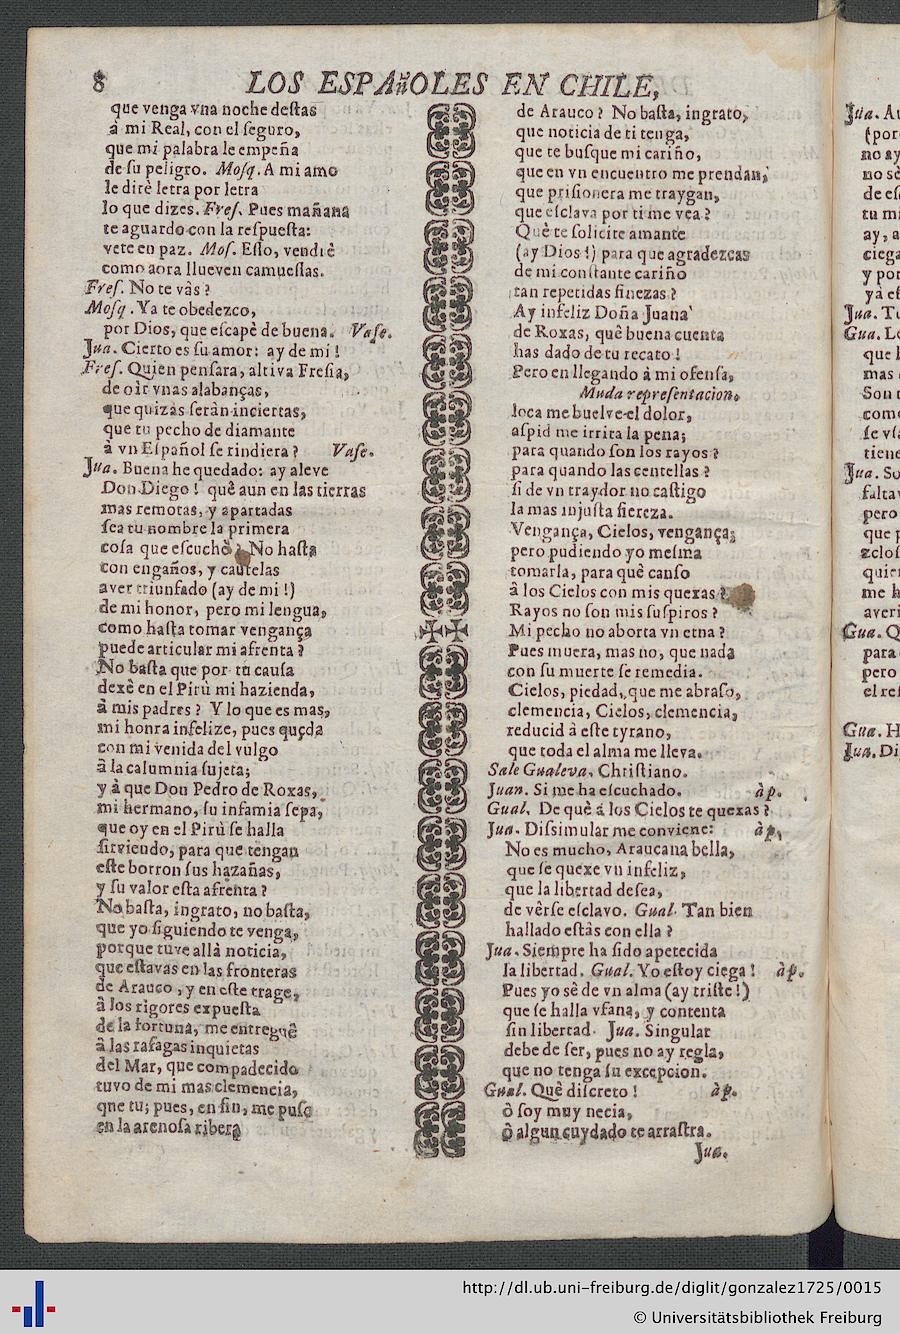 8 LOS ESPAñOLES EN CHILE,
que venga vna noche destas
à mi Real, con el seguro,
que mi palabra le empeña
de su peligro. Mosq. A mi amo
le dirè letra por letra
lo que dizes. Fres. Pues mañana
te aguardo con la respuesta:
vete en paz. Mos. Esso, vendrè
como aora llueven camuessas.
Fres. No te vàs?
Mosq. Ya te obedezco,
por Dios, que escapè de buena. Vase.
Jua. Cierto es su amor: ay de mi!
Fres. Quien pensara, altiva Fresia,
de oìr vnas alabanças,
que quizàs seràn inciertas,
que tu pecho de diamante
à vn Español se rindiera? Vase.
Jua. Buena he quedado: ay aleve
Don Diego! què aun en las tierras
mas remotas, y apartadas
sea tu nombre la primera
cosa que escuchò? No hasta
con engaños, y cautelas
aver triunfado (ay de mi!)
de mi honor, pero mi lengua,
como hasta tomar vengança
puede articular mi afrenta?
No basta que por tu causa
dexè en el Pirù mi hazienda,
à mis padres? Y lo que es mas,
mi honra infelize, pues queda
con mi venida del vulgo
à la calumnia sujeta;
y à que Don Pedro de Roxas,
mi hermano, su infamia sepa,
que oy en el Pirù se halla
sirviendo, para que tengan
este borron sus hazañas,
y su valor esta afrenta?
No basta, ingrato, no basta,
que yo siguiendo te venga,
porque tuve allà noticia,
que estavas en las fronteras
de Arauco, y en este trage,
à los rigores expuesta
de la fortuna, me entreguè
à las rafagas inquietas
del Mar, que compadecido
tuvo de mi mas clemencia,
que tu; pues, en fin, me puso
en la arenosa ribera
de Arauco? No basta, ingrato,
que noticia de ti tenga,
que te busque mi cariño,
que en vn encuentro me prendan,
que prisionera me traygan,
que esclava por ti me vea?
Què te solicite amante
(ay Dios!) para que agradezcas
de mi constante cariño
tan repetidas finezas?
Ay infeliz Doña Juana
de Roxas, què buena cuenta
has dado de tu recato!
Pero en llegando à mi ofensa,
Muda representacion.
loca me buelve el dolor,
aspid me irrita la pena;
para quando son los rayos?
para quando las centellas?
si de vn traydor no castigo
la mas injusta fiereza.
Vengança, Cielos, vengança;
pero pudiendo yo mesma
tomarla, para què canso
à los Cielos con mis quexas?
Rayos no son mis suspiros?
Mi pecho no aborta vn etna?
Pues muera, mas no, que nada
con su muerte se remedia.
Cielos, piedad, que me abraso,
clemencia, Cielos, clemencia,
reducid à este tyrano,
que toda el alma me lleva.
Sale Gualeva. Christiano.
Juan. Si me ha escuchado. àp.
Gual. De què à los Cielos te quexas?
Jua. Dissimular me conviene: àp.
No es mucho, Araucana bella,
que se quexe vn infeliz,
que la libertad desea,
de vèrse esclavo. Gual. Tan bien
hallado estàs con ella?
Jua. Siempre ha sido apetecida
la libertad. Gual. Yo estoy ciega! àp.
Pues yo sè de vn alma (ay triste!)
que se halla vfana, y contenta
sin libertad. Jua. Singular
debe de ser, pues no ay regla,
que no tenga su excepcion.
Gual. Què discreto! àp.
ò soy muy necia,
ò algun cuydado te arrastra.
Jua.
http://dl.ub.uni-freiburg.de/diglit/gonzalez1725/0015
© Universitätsbibliothek Freiburg